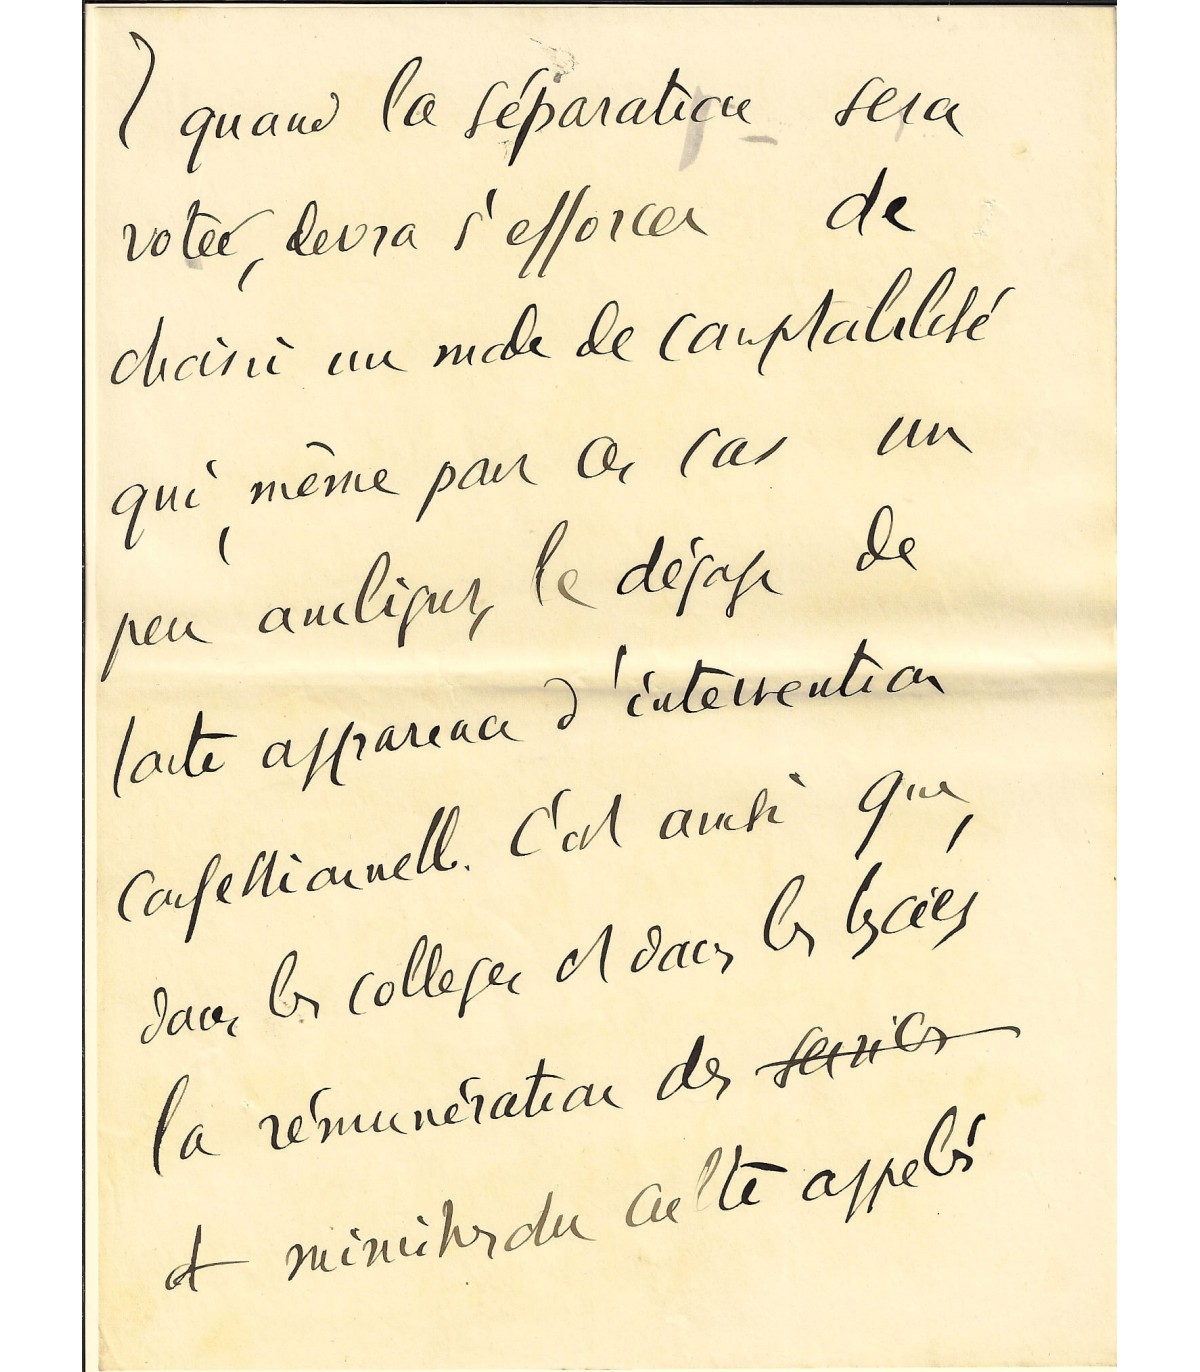 quand la séparation sera
votée, devra s'efforcer de
choisir un mode de comptabilité
qui, même pour ce cas un
peu ambigu, le dégage de
toute apparence d'intervention
confessionnelle. C'est ainsi que,
dans les collèges et dans les lycées
la rémunération des services
et ministres du culte appelés